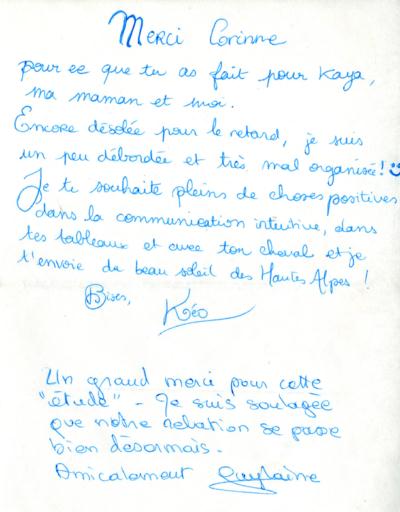 Merci Corinne
pour ce que tu as fait pour Kaya,
ma maman et moi.
Encore désolée pour le retard, je suis
un peu débordée et très mal organisée!
Je te souhaite pleins de choses positives
dans la communication intuitive, dans
tes tableaux et avec ton cheval et je
t'envoie du beau soleil des Hautes Alpes !
Bises, Kéo
Un grand merci pour cette
"étude" - Je suis soulagée
que notre relation se passe
bien désormais.
Amicalement Guylaine